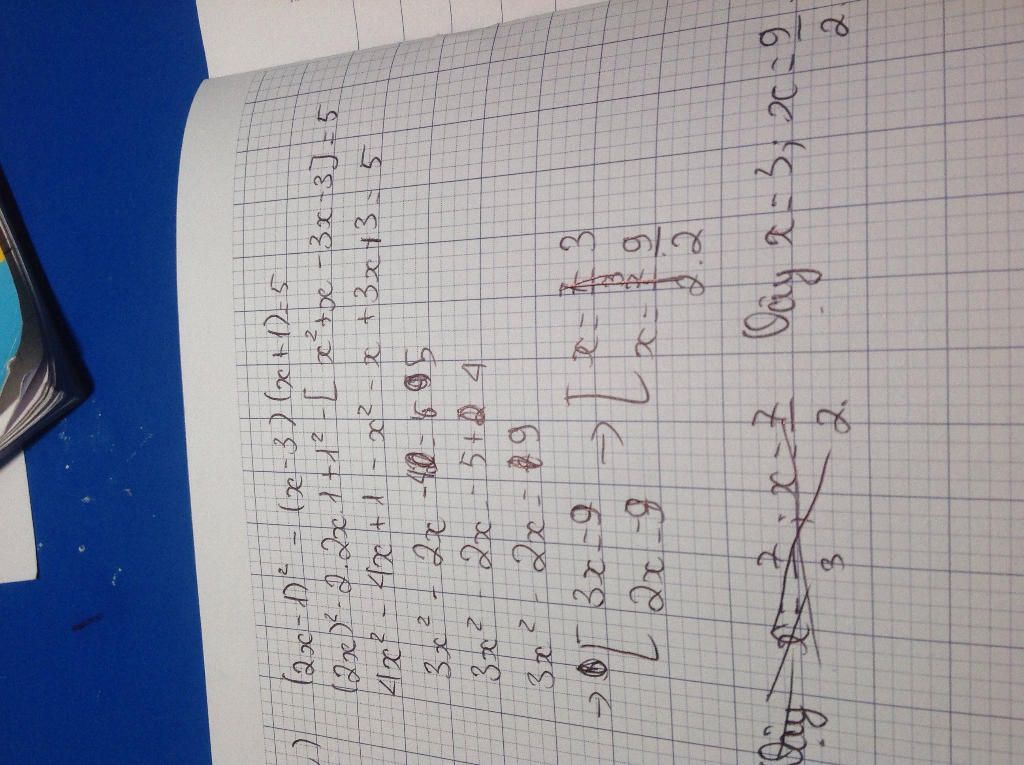 )
(2x-1)² - (x-3)(x+1)=5
(2x)² - 2.2x.1+1² - [x²+x-3x-3]=5
4x² - 4x+1 - x² - x +3x+3=5
3x² - 2x - 4 = 5
3x² - 2x = 5+4
3x² - 2x = 9
→ [ 3x=9 → [ x= 3
2x=9 x= 9
2
Vậy x= 7 ; x= 7 Vậy x=3; x=9
3 2. 2